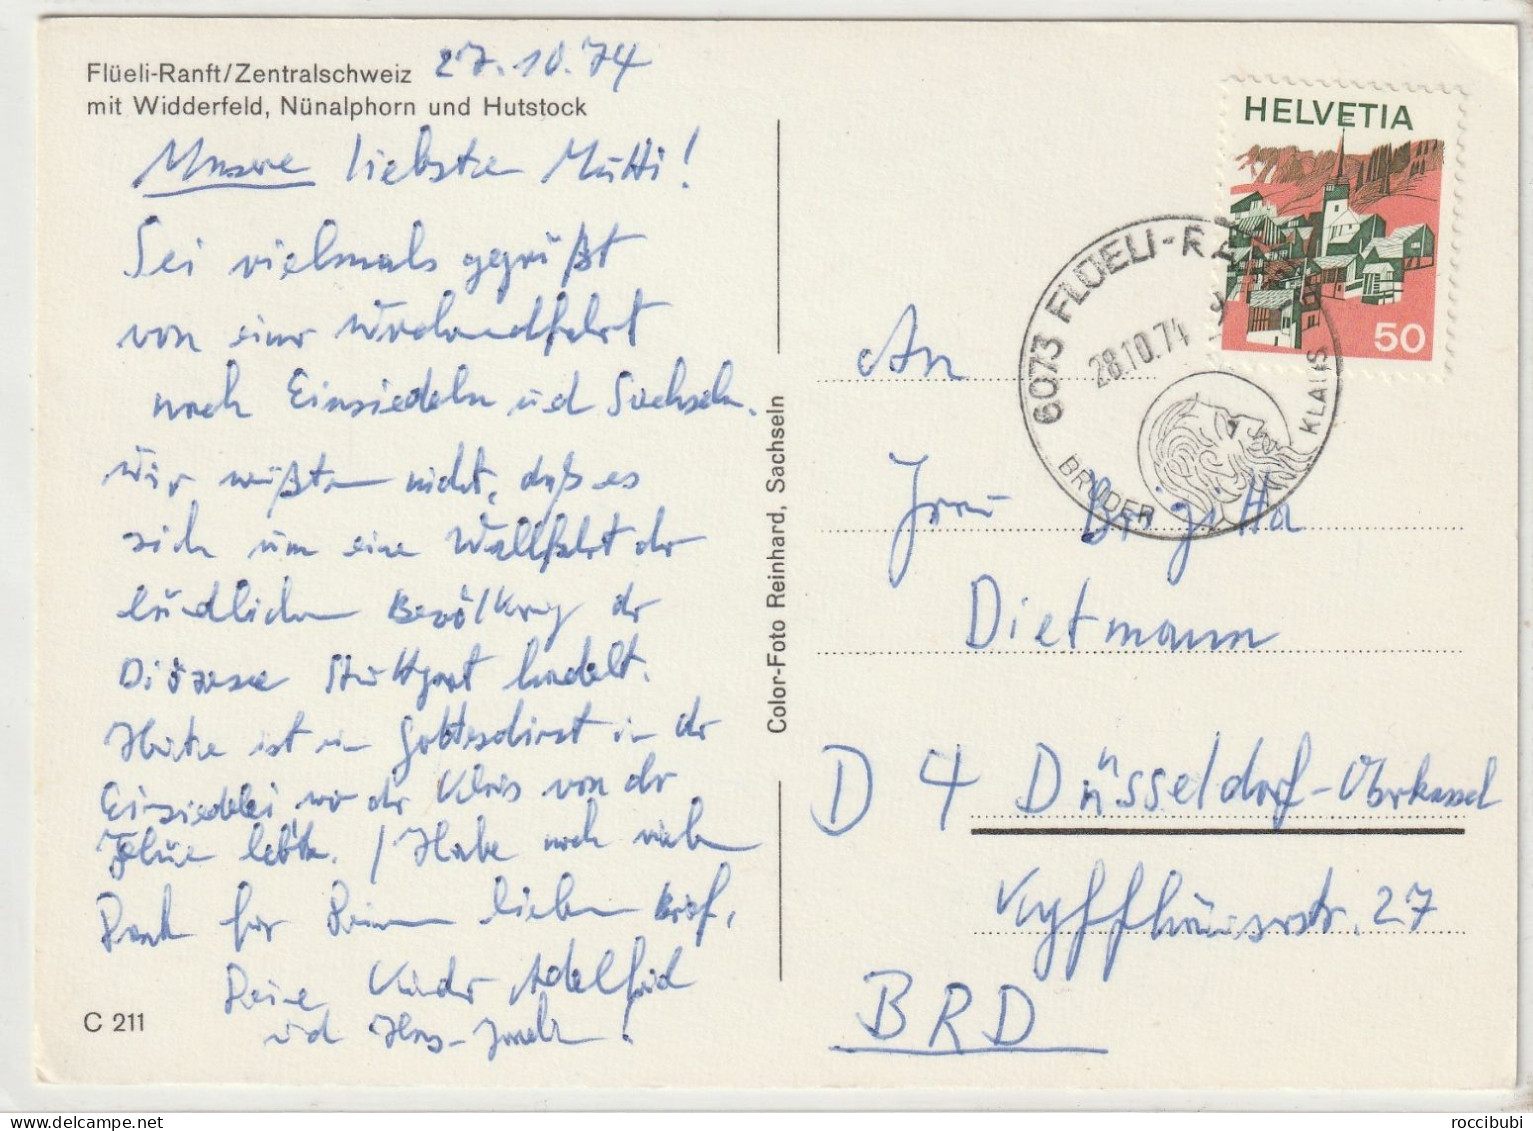 Flüeli-Ranft/Zentralschweiz 27.10.74
mit Widderfeld, Nünalphorn und Hutstock
Unsere liebste Mutti!
Sei vielmals gegrüßt
von einer
nach Einsiedeln und Sachseln.
Wir wußten nicht, daß es
sich um eine Wallfahrt der
ländlichen Bevölkerung der
Diözese Stuttgart handelt.
Heute ist ein Gottesdienst in der
Einsiedelei wo der Klaus von der
Flüe lebte. / Habe noch vielen
Dank für Deinen lieben Brief,
Deine Kinder Adelfried
und
C 211
Color-Foto Reinhard, Sachseln
HELVETIA
50
6073 FLÜELI-RA
28.10.74
9
BRUDER KLAUS
An
Frau Brigitta
Dietmann
D 4 Düsseldorf-Oberkassel
Kyffhäuserstr. 27
BRD
roccibubi